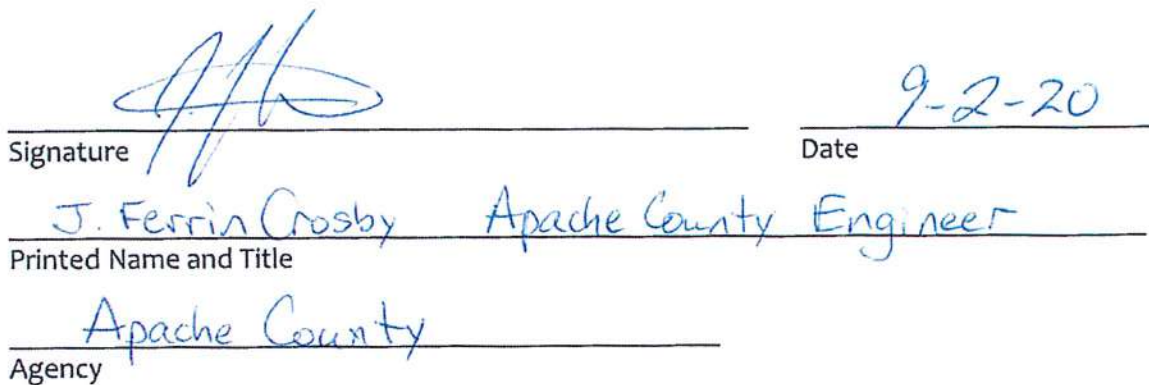 9-2-20
Signature Date
J. Ferrin Crosby Apache County Engineer
Printed Name and Title
Apache County
Agency